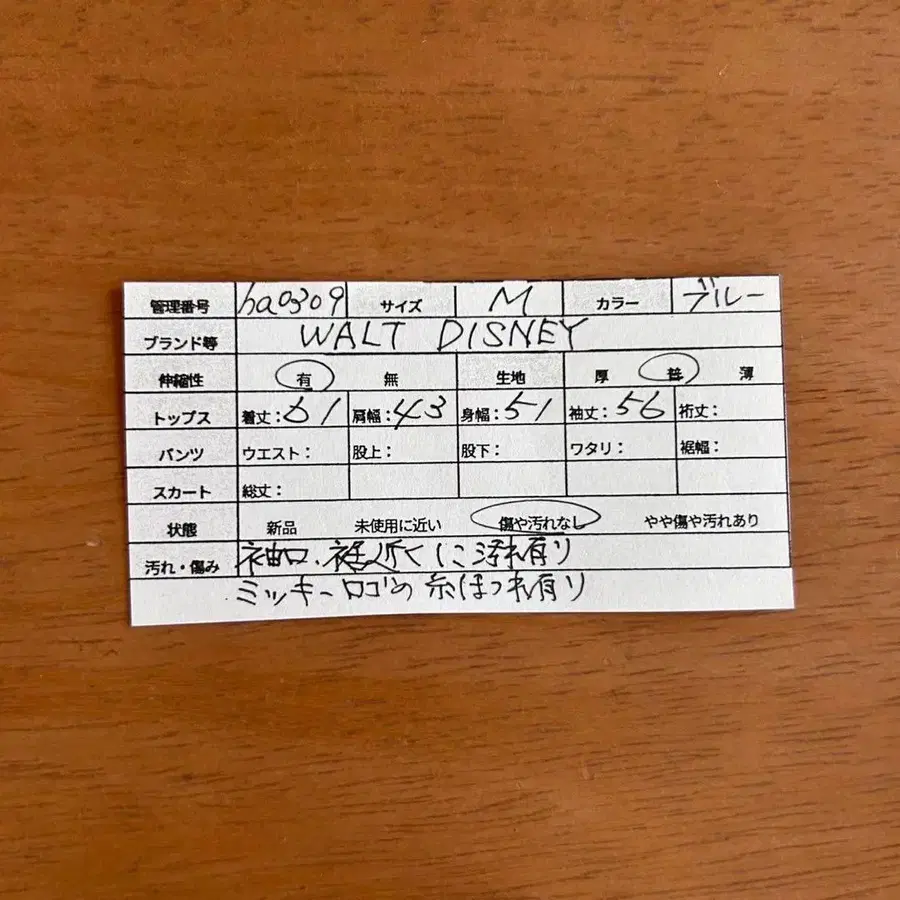 管理番号 ha0309 サイズ M カラー ブルー
ブランド等 WALT DISNEY
伸縮性 有 無 生地 厚 普 薄
トップス 着丈：61 肩幅：43 身幅：51 袖丈：56 裄丈：
パンツ ウエスト： 股上： 股下： ワタリ： 裾幅：
スカート 総丈：
状態 新品 未使用に近い 傷や汚れなし やや傷や汚れあり
汚れ・傷み 袖口、裾近くに汚れ有り
ミッキーロゴの糸ほつれ有り